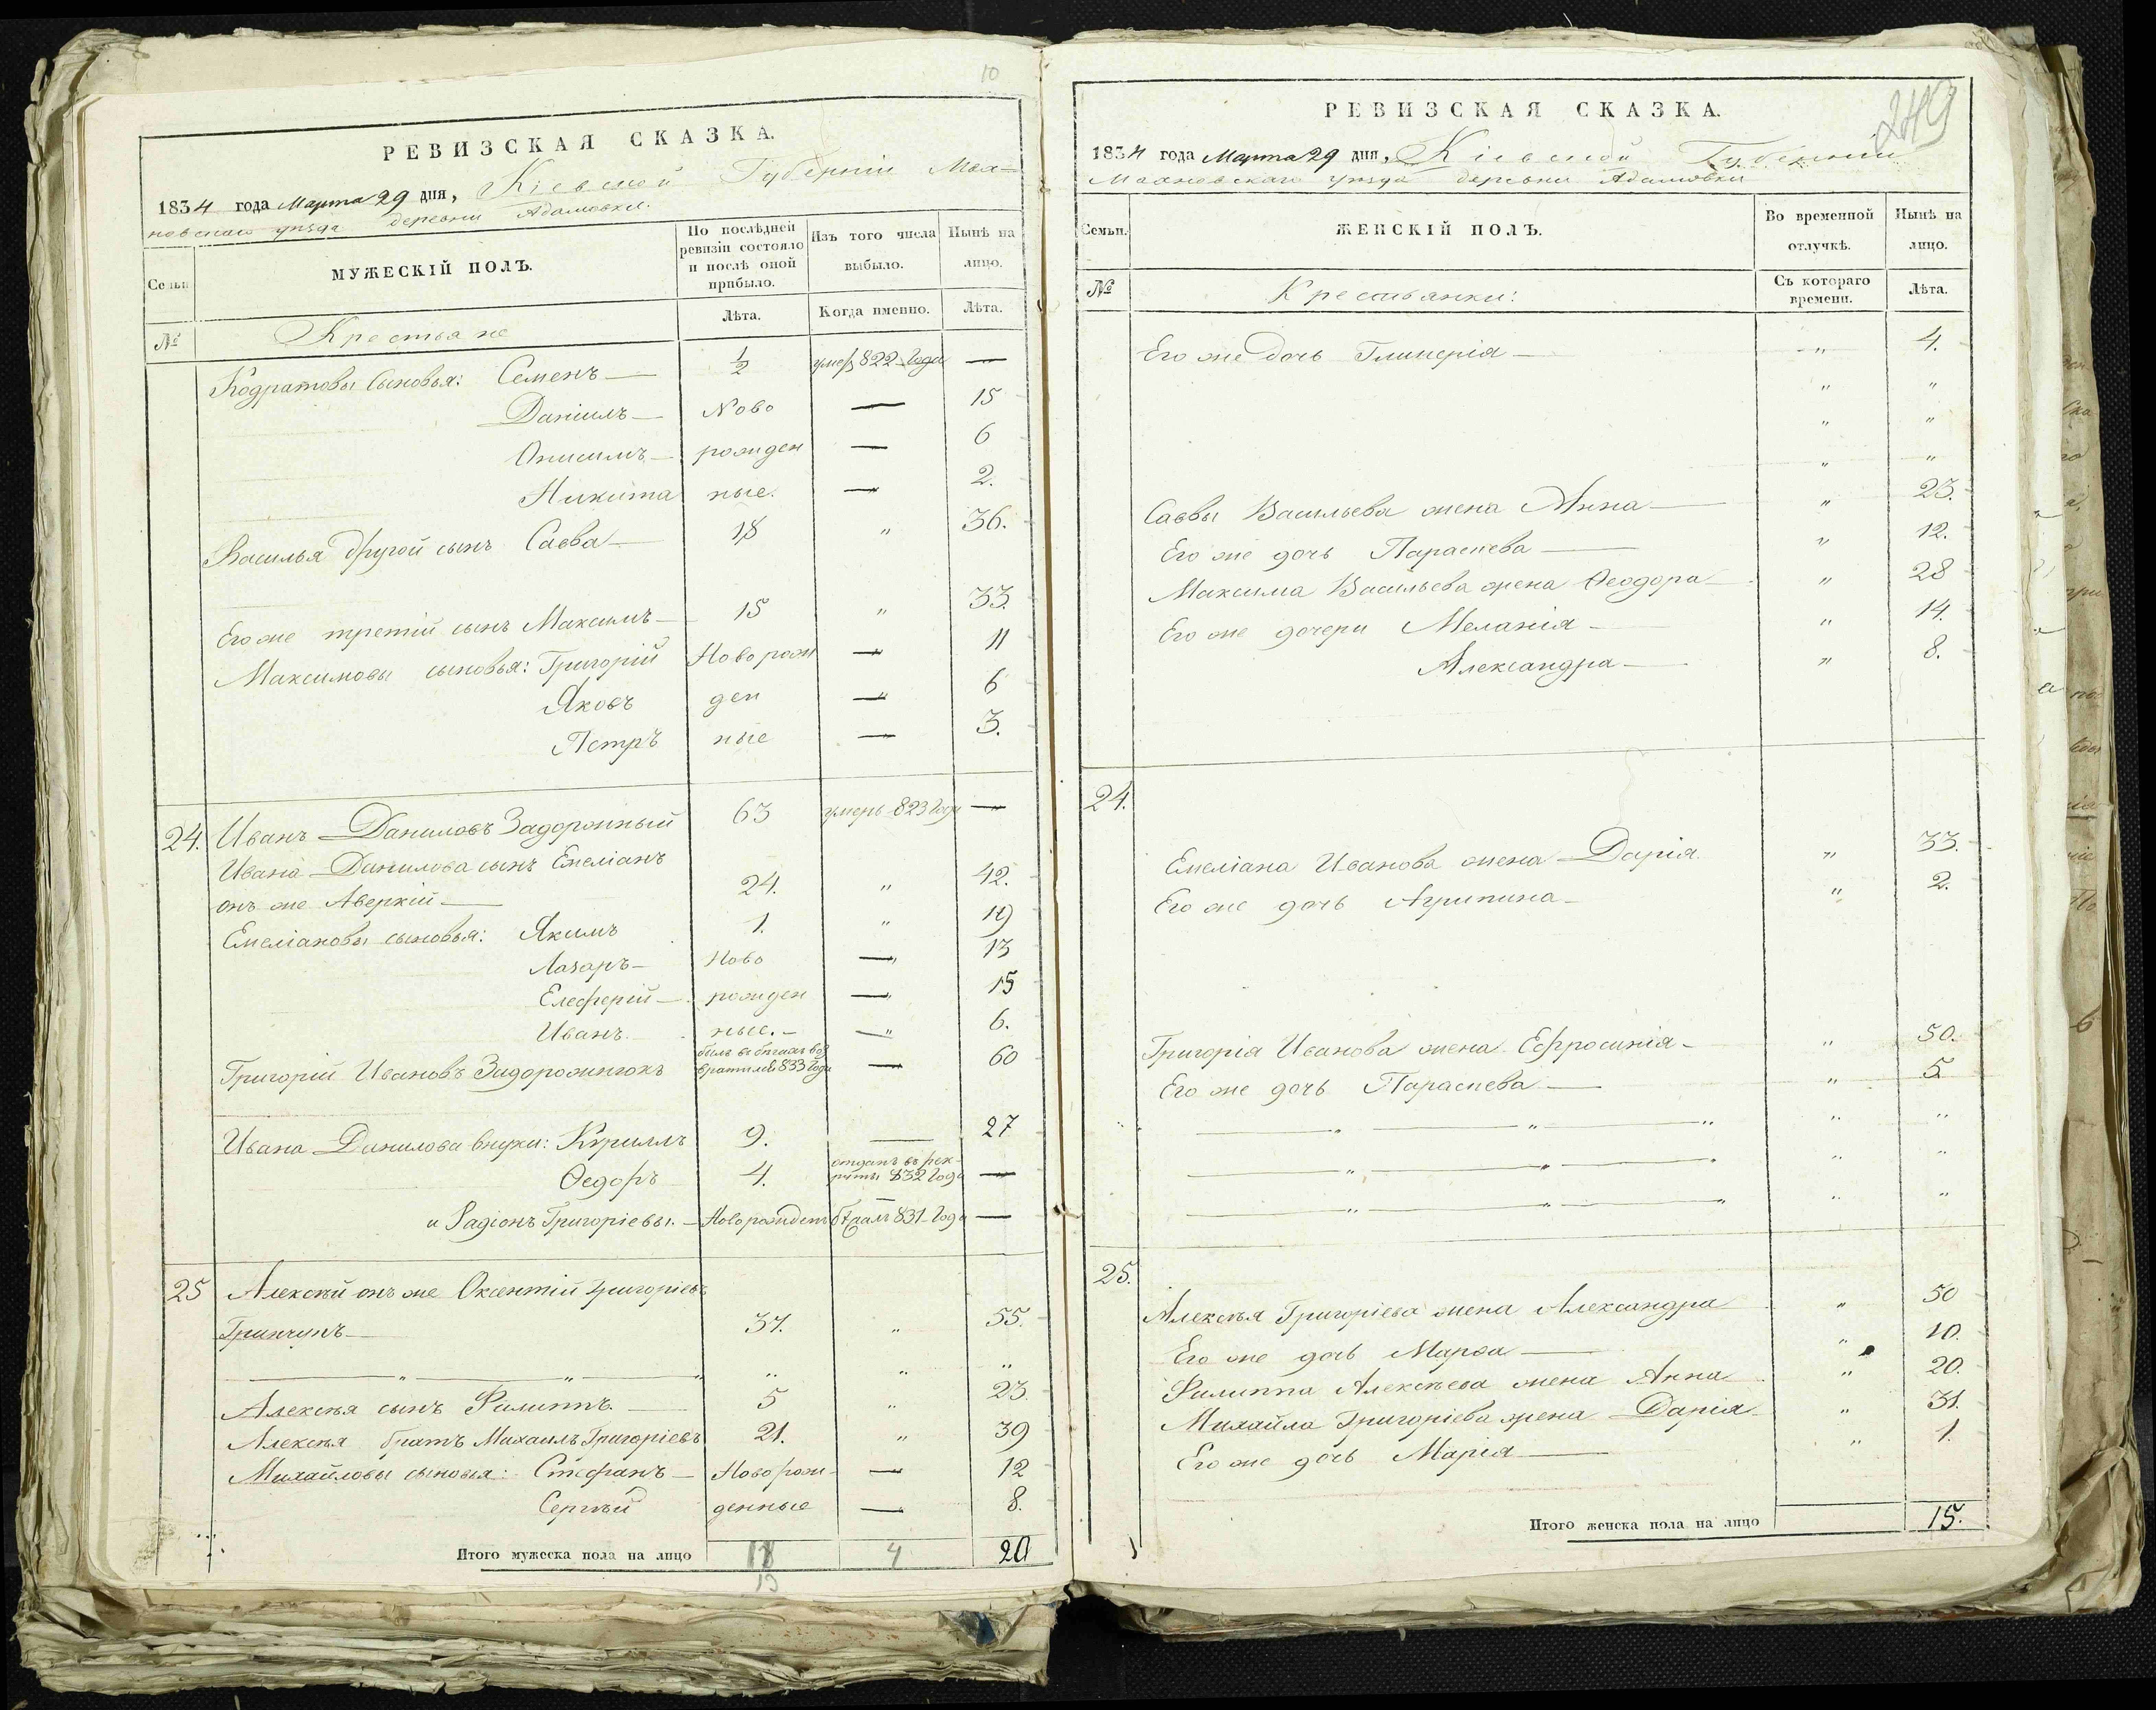 10
РЕВИЗСКАЯ СКАЗКА.
1834 года Марта 29 дня, Кіевской Губерніи Мах-
новскаго уѣзда деревни Адамовки.
Семьи
МУЖЕСКІЙ ПОЛЪ.
По послѣдней ревизіи состояло и послѣ оной прибыло.
Изъ того числа выбыло.
Нынѣ на лицо.
№ Крестьяне Лѣта. Когда именно. Лѣта.
Кодратовы сыновья: Семенъ — 1/2 умер 822 года —
Даніилъ — Ново — 15
Онисимъ — рожден — 6
Никита ные. — 2.
Василья другой сынъ Савва — 18 " 36.
Его же третій сынъ Максимъ — 15 " 33.
Максимовы сыновья: Григорій Новорож — 11
Яковъ ден — 6
Петръ ные — 3.
24. Иванъ Даниловъ Задорожный 63 умеръ 823 года —
Ивана Данилова сынъ Емеліанъ
онъ же Аверкій — 24. " 42.
Емеліановы сыновья: Якимъ 1. " 19
Лазаръ — Ново — 13
Елеферій — рожден — 15
Иванъ. ные. — — 6.
Григорій Ивановъ Задорожнюкъ былъ въ бѣгахъ воз
вратился 833 года — 60
Ивана Данилова внуки: Кириллъ 9. — 27
Ѳедоръ 4. отданъ въ рек-
руты 832 года —
и Радіонъ Григоріевы. — Новорожден 831 года —
25 Алексѣй онъ же Оксентій Григоріевъ
Гринчукъ — 37. " 55.
— " — " — " " "
Алексѣя сынъ Филиппъ. — 5 " 23
Алексѣя братъ Михаилъ Григоріевъ 21. " 39
Михайловы сыновья: Стефанъ — Новорож- — 12
Сергѣй денные — 8.
Итого мужеска пола на лицо 18 4 20
13
249
РЕВИЗСКАЯ СКАЗКА.
1834 года Марта 29 дня, Кіевской Губерніи
Махновскаго уѣзда деревни Адамовки
Семьи.
ЖЕНСКІЙ ПОЛЪ.
Во временной отлучкѣ.
Нынѣ на лицо.
№ Крестьянки: Съ котораго времени. Лѣта.
Его же дочь Гликерія — " 4.
" "
" "
" "
Саввы Васильева жена Анна — " 23.
Его же дочь Параскева — " 12.
Максима Васильева жена Ѳеодора — " 28
Его же дочери Меланія — " 14.
Александра — " 8.
24.
Емеліана Иванова жена Дарія. " 33.
Его же дочь Агрипина — " 2.
Григорія Иванова жена Ефросинія — " 50.
Его же дочь Параскева — " 5
— " — " — " " "
— " — " — " " "
— " — " — " " "
25.
Алексѣя Григоріева жена Александра " 50
Его же дочь Марѳа — " 10.
Филиппа Алексѣева жена Анна " 20.
Михайла Григоріева жена Дарія — " 31.
Его же дочь Марія — " 1.
Итого женска пола на лицо 15.